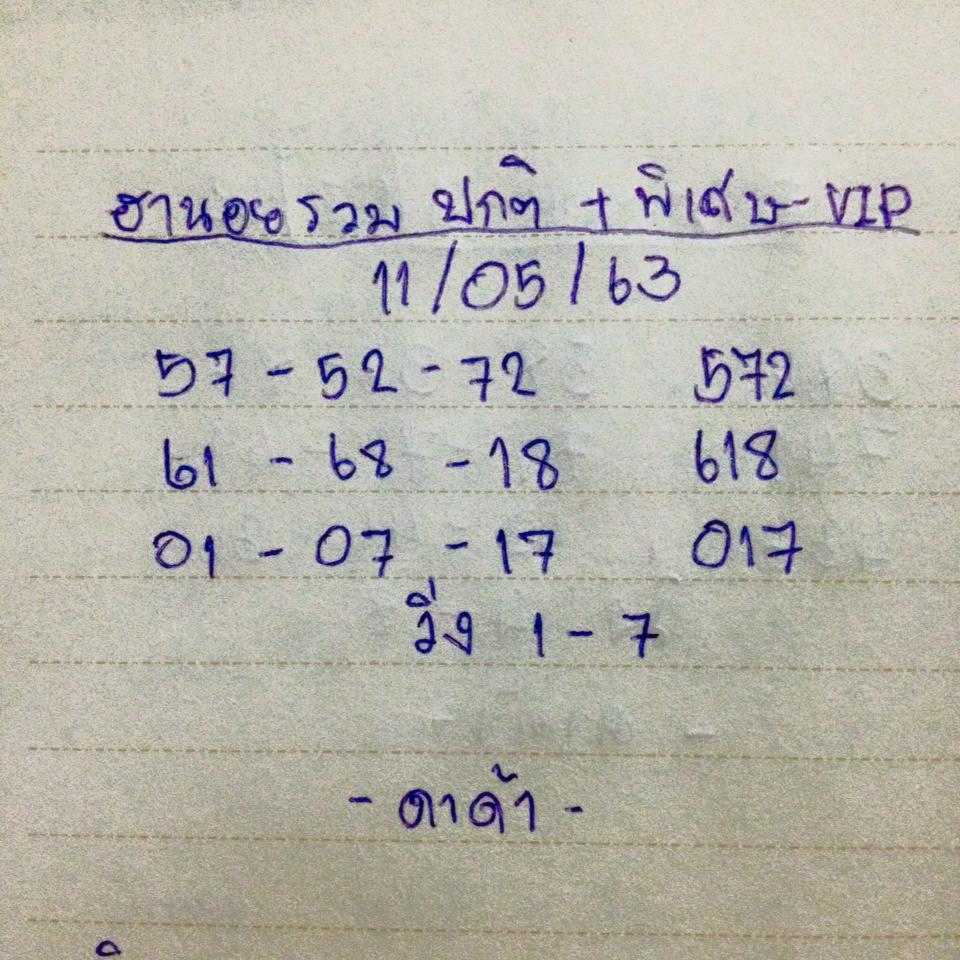 ฮานอยรวม ปกติ + พิเศษ-VIP
11/05/63
57 - 52 - 72 572
61 - 68 - 18 618
01 - 07 - 17 017
วิ่ง 1 - 7
- ดาด้า -